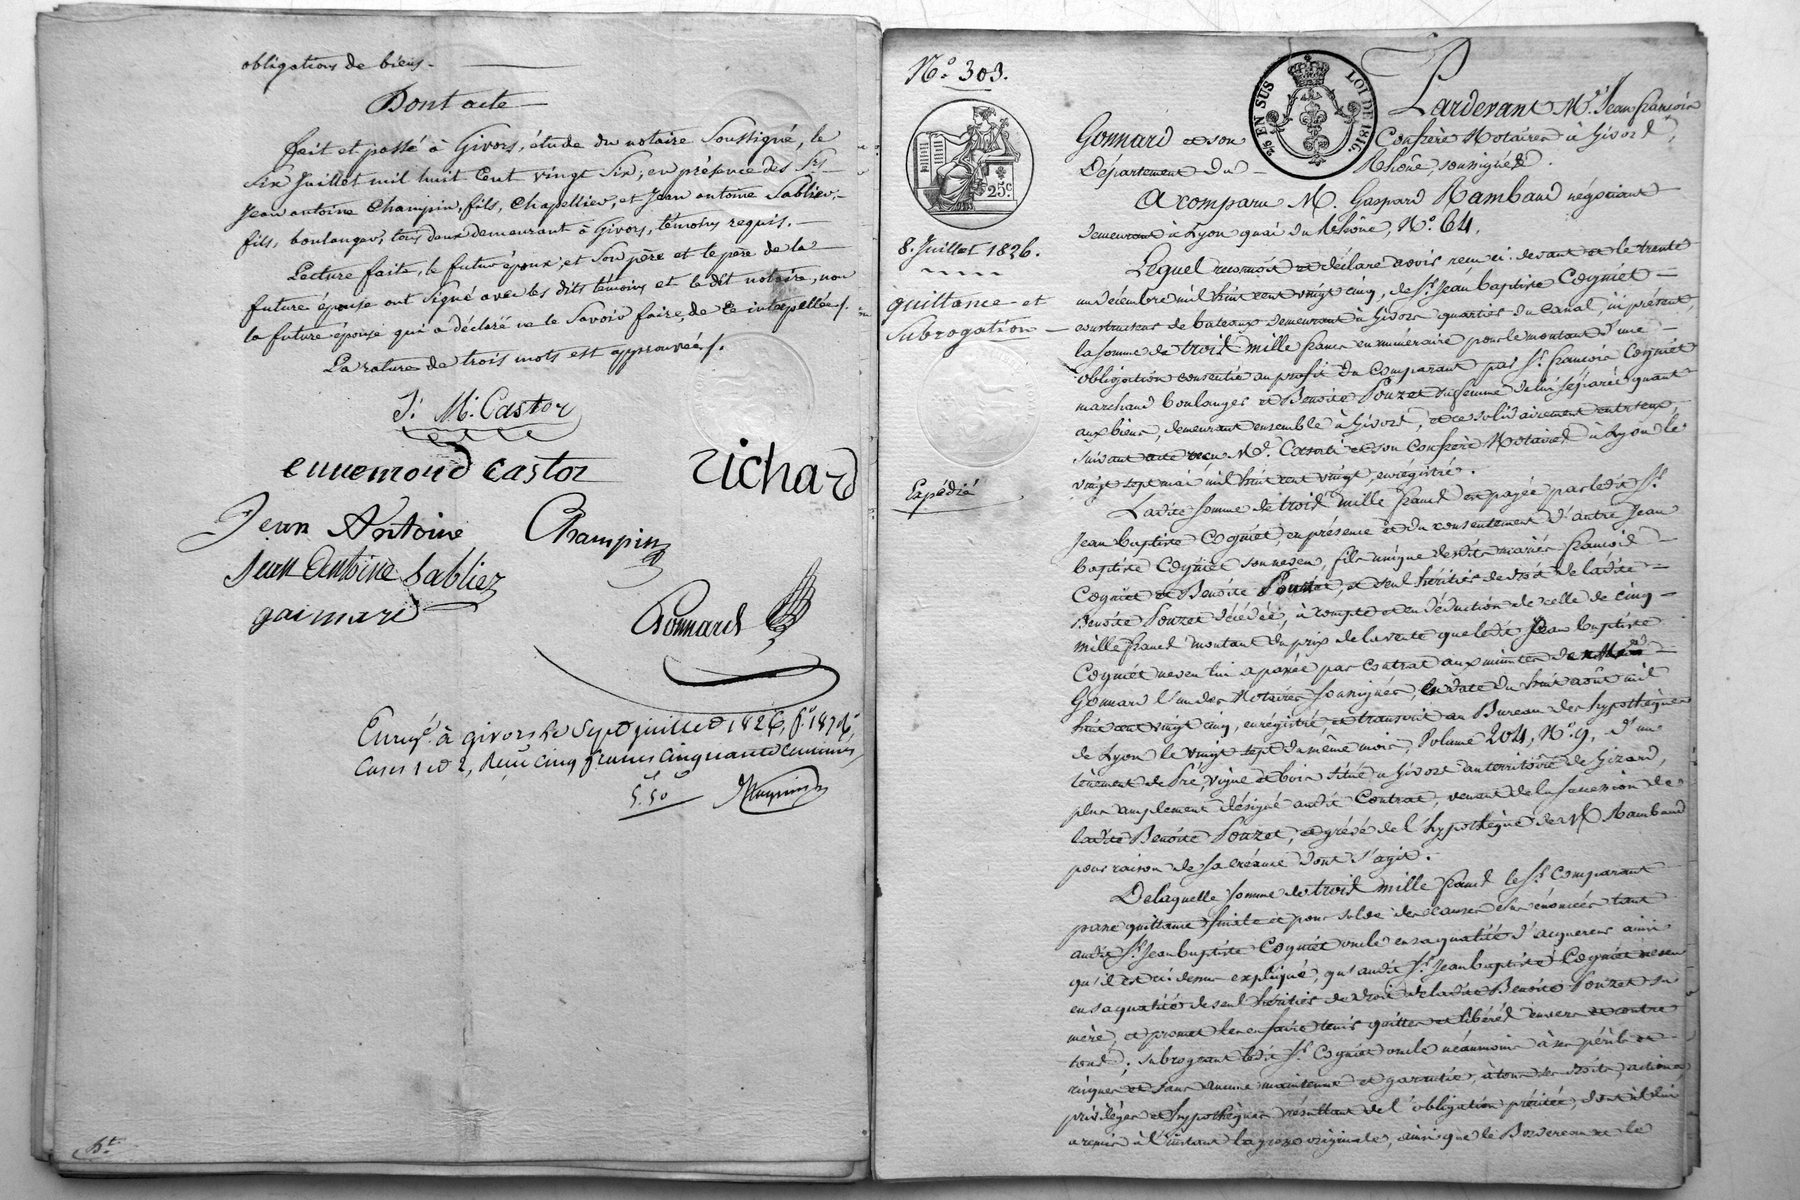 obligations de biens.
Dont acte
fait et passé à Givors, étude du notaire soussigné, le
six Juillet mil huit cent vingt six, en présence des Srs
Jean antoine Champin, fils, Chapellier, et Jean antoine Sablier,
fils, boulanger, tous deux demeurant à Givors, témoins requis.
Lecture faite, le futur époux, et son père et le père de la
future épouse ont signé avec les dits témoins et le dit notaire, non
la future épouse qui a déclaré ne le savoir faire, de ce interpellée.
La rature de trois mots est approuvée.
J. M. Castor
ennemond castor
richard
Jean Antoine Champin
Jean Antoine Sablier
gaimard
Gonnard
Enregé. à givors le sept juillet 1826, fo. 187
Cases 1 et 2, Reçu cinq francs cinquante centimes
5f. 50c
No. 303.
25c.
8. Juillet 1826.
quittance et
Subrogation
Expédié
25 EN SUS
LOI DE 1816.
Pardevant Me. Jean françois
Gonnard et son Confrère Notaires à Givors,
Département du Rhône, soussignés.
A comparu M. Gaspard Rambaud négociant
demeurant à Lyon quai du Rhône, No. 64.
Lequel reconnoît et déclare avoir reçu ci-devant et le trente
un décembre mil huit cent vingt cinq, de Sr. Jean baptiste Cognet
constructeur de bateaux demeurant à Givors quartier du Canal, ici présent,
la somme de trois mille francs en numéraire pour le montant d'une
obligation consentie au profit du comparant par Sr. françois Cognet
marchand boulanger et Benoite Pouzet sa femme de lui séparée quant
aux biens, demeurant ensemble à Givors, et ce solidairement entr'eux,
suivant acte reçu Me. et son confrère Notaires à Lyon le
vingt sept mai mil huit cent vingt, enregistré.
Ladite somme de trois mille francs est payée par ledit Sr.
Jean baptiste Cognet en présence et du consentement d'autre Jean
baptiste Cognet son neveu, fils unique desdits mariés françois
Cognet et Benoite Pouzet, et seul héritier de droit de ladite
Benoite Pouzet décédée, à compte et en déduction de celle de cinq
mille francs montant du prix de la vente que ledit Jean baptiste
Cognet neveu lui a passée par contrat aux minutes de
Gonnard l'un des Notaires soussignés, en date du huit août mil
huit cent vingt cinq, enregistré, et transcrit au Bureau des hypothèques
de Lyon le vingt sept du même mois, Volume 204, No. 9, d'un
tènement de Pré, vigne et bois situé à Givors au territoire de Gizard,
plus amplement désigné audit Contrat, venant de la succession de
ladite Benoite Pouzet, et grévé de l'hypothèque de M. Rambaud
pour raison de sa créance dont s'agit.
De laquelle somme de trois mille francs le Sr. Comparant
passe quittance finale et pour solde des causes sus énoncées tant
audit Sr. Jean baptiste Cognet oncle en sa qualité d'acquereur ainsi
qu'il est ci-dessus expliqué, qu'audit Sr. Jean baptiste Cognet neveu
en sa qualité de seul héritier de droit de ladite Benoite Pouzet sa
mère, et promet les en faire tenir quittes et libérés envers et contre
tous; subrogeant ledit Sr. Cognet oncle néanmoins à ses périls et
risques et sans aucune maintenue et garantie, à tous ses droits, actions,
privilèges et hypothèques résultant de l'obligation précitée, dont il lui
a remis à l'instant la grosse originale, ainsi que le Bordereau de le